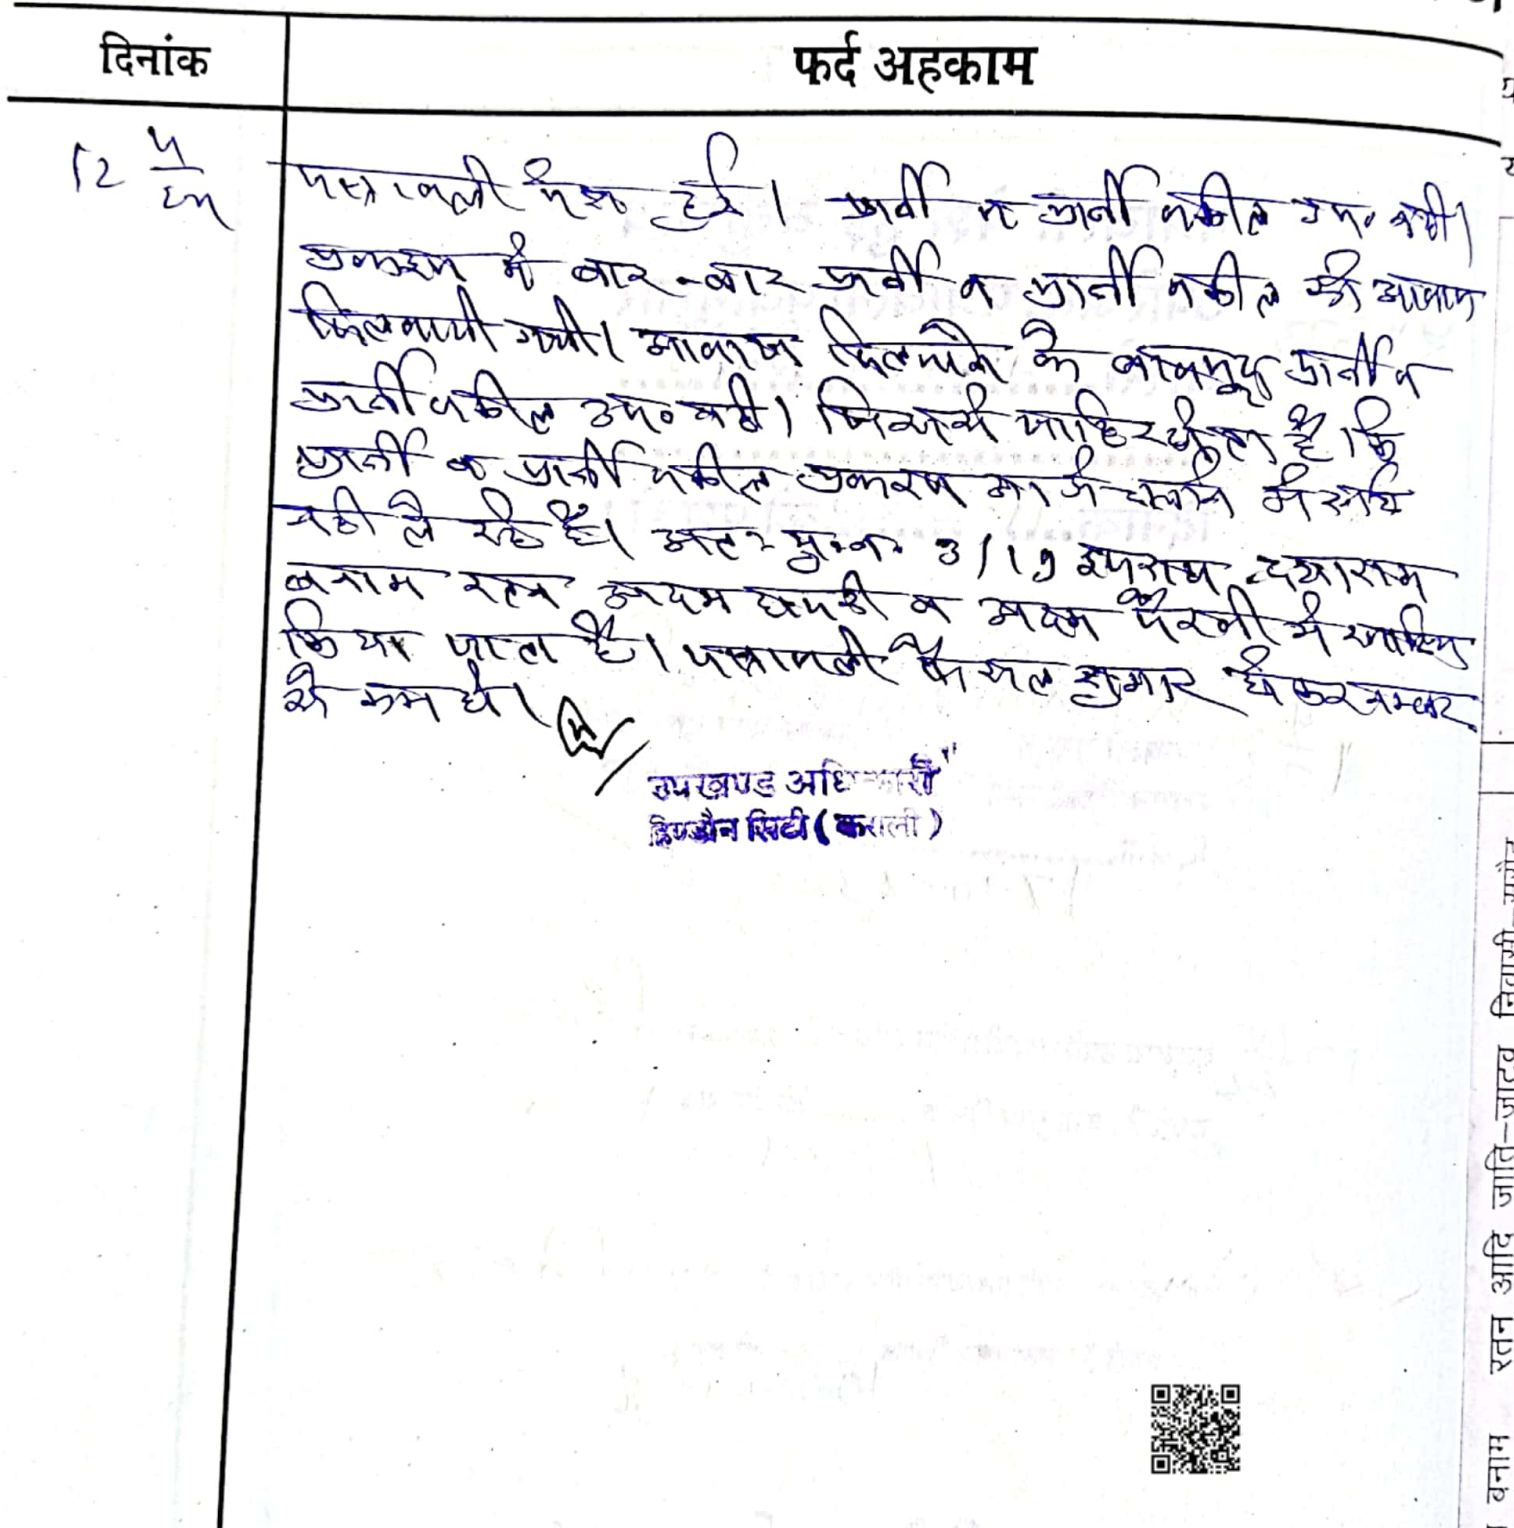 दिनांक
फर्द अहकाम
12
पत्रावली पेश हुई। प्रार्थी व प्रार्थी वकील उप० नही।
प्रकरण में बार-बार प्रार्थी व प्रार्थी वकील की आवाज
दिलवायी गयी। आवाज दिलवाने के बावजूद प्रार्थी व
प्रार्थी वकील उप० नही। जिससे जाहिर होता है कि
प्रार्थी व प्रार्थी वकील प्रकरण को चलाने में रूचि
नही ले रहे है। अतः मु.न. 3/19 दयाराम
बनाम रतन अदम हाजरी व अदम पैरवी में खारिज
किया जाता है। पत्रावली फैसल शुमार होकर नम्बर
से कम हो।
उपखण्ड अधिकारी
हिण्डौन सिटी (करौली)
बनाम रतन आदि जाति-जाटव निवासी